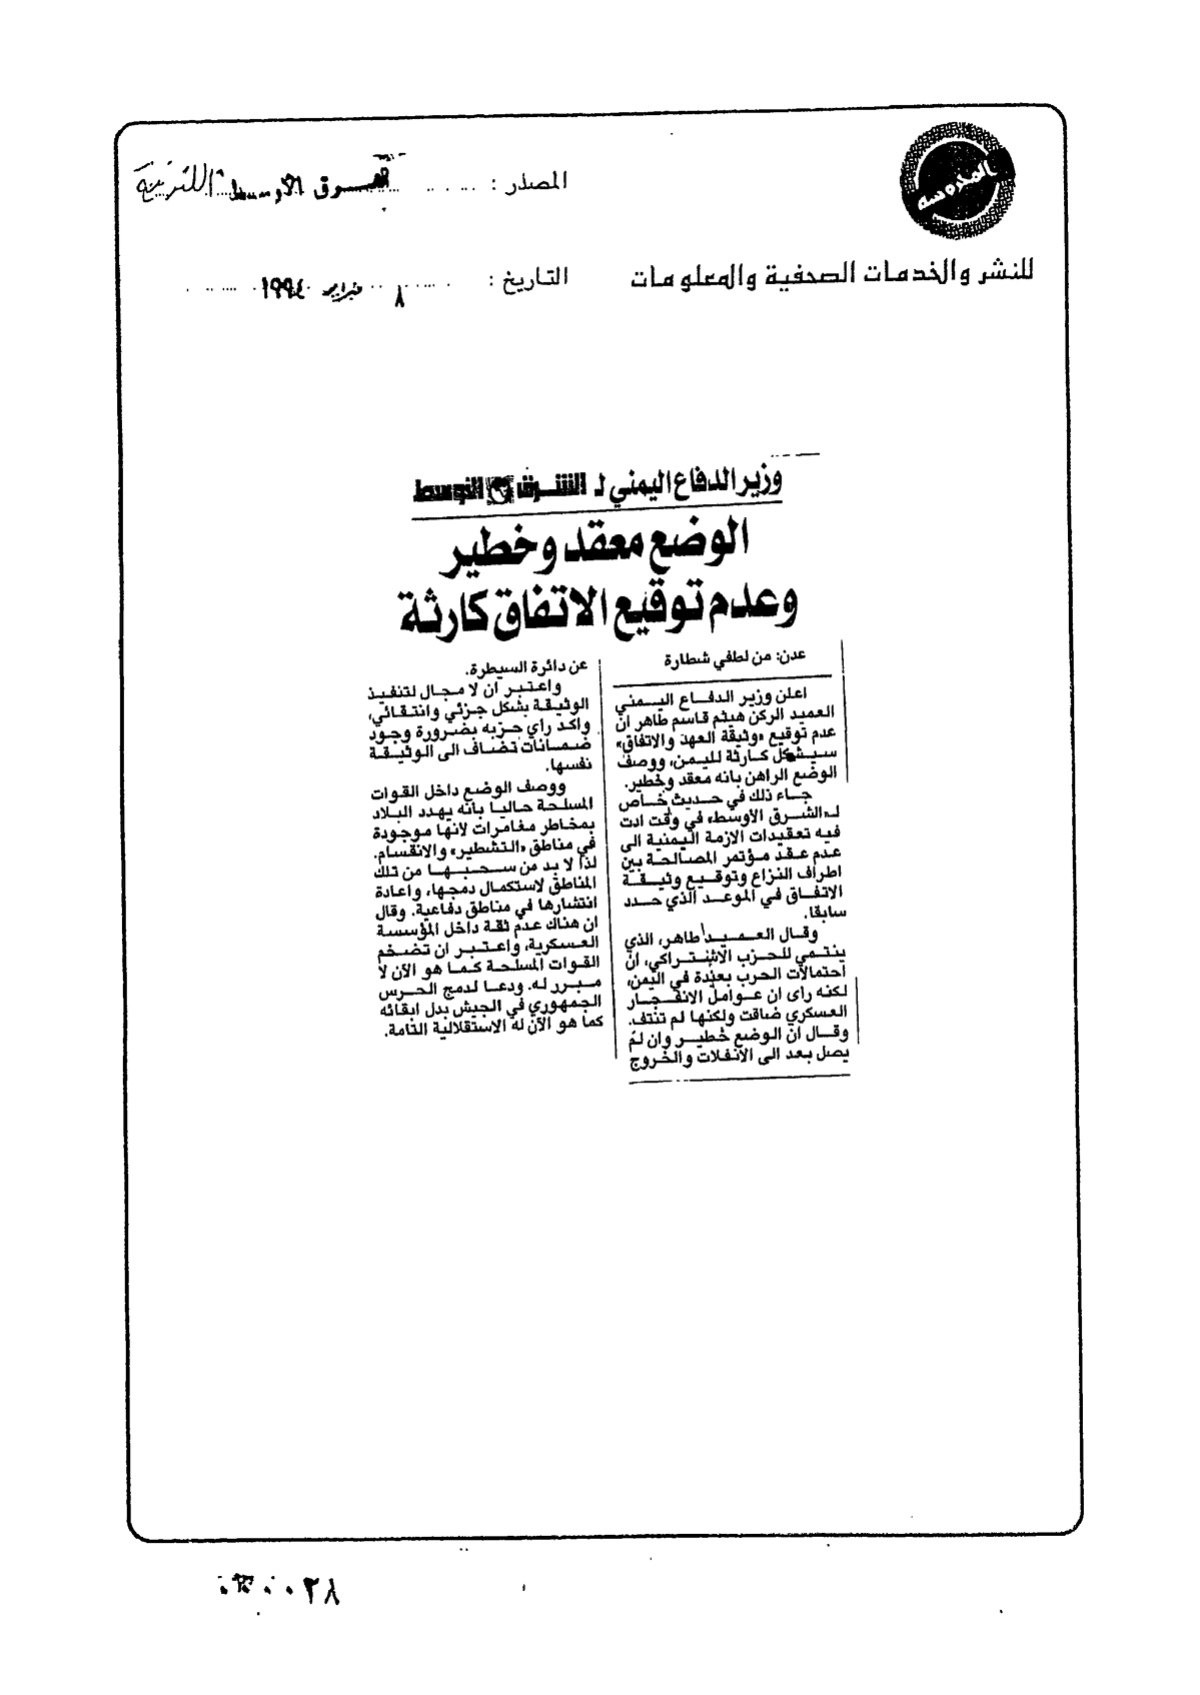 المحروسة
المصدر : الشرق الأوسط اللندنية
للنشر والخدمات الصحفية والمعلومات
التاريخ : ٨ فبراير ١٩٩٤
وزير الدفاع اليمني لـ الشرق الأوسط
الوضع معقد وخطير
وعدم توقيع الاتفاق كارثة
عدن: من لطفي شطارة
اعلن وزير الدفاع اليمني
العميد الركن هيثم قاسم طاهر ان
عدم توقيع «وثيقة العهد والاتفاق»
سيشكل كارثة لليمن، ووصف
الوضع الراهن بانه معقد وخطير.
جاء ذلك في حديث خاص
لـ«الشرق الأوسط» في وقت ادت
فيه تعقيدات الازمة اليمنية الى
عدم عقد مؤتمر المصالحة بين
اطراف النزاع وتوقيع وثيقة
الاتفاق في الموعد الذي حدد
سابقا.
وقال العميد طاهر، الذي
ينتمي للحزب الاشتراكي، ان
احتمالات الحرب بعيدة في اليمن،
لكنه راى ان عوامل الانفجار
العسكري ضاقت ولكنها لم تنتف.
وقال ان الوضع خطير وان لم
يصل بعد الى الانفلات والخروج
عن دائرة السيطرة.
واعتبر ان لا مجال لتنفيذ
الوثيقة بشكل جزئي وانتقائي،
واكد راي حزبه بضرورة وجود
ضمانات تضاف الى الوثيقة
نفسها.
ووصف الوضع داخل القوات
المسلحة حاليا بانه يهدد البلاد
بمخاطر مغامرات لانها موجودة
في مناطق «التشطير» والانقسام.
لذا لا بد من سحبها من تلك
المناطق لاستكمال دمجها، واعادة
انتشارها في مناطق دفاعية. وقال
ان هناك عدم ثقة داخل المؤسسة
العسكرية، واعتبر ان تضخم
القوات المسلحة كما هو الآن لا
مبرر له. ودعا لدمج الحرس
الجمهوري في الجيش بدل ابقائه
كما هو الآن له الاستقلالية التامة.